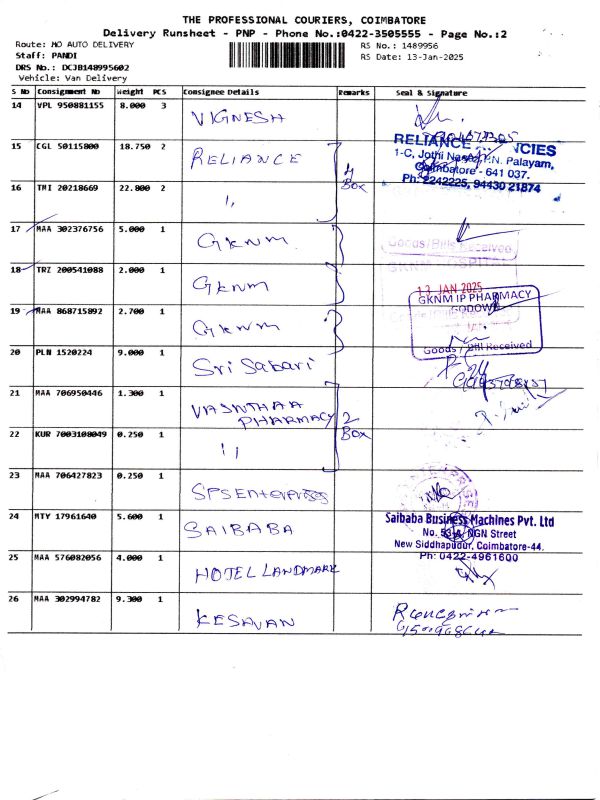 THE PROFESSIONAL COURIERS, COIMBATORE
Delivery Runsheet - PNP - Phone No.:0422-3505555 - Page No.:2
Route: MO AUTO DELIVERY
Staff: PANDI
DRS No.: DCJB148995602
Vehicle: Van Delivery
RS No.: 1489956
RS Date: 13-Jan-2025
S No Consignment No Weight PCS Consignee Details Remarks Seal & Signature
14 VPL 950881155 8.000 3 VIGNESH
15 CGL 50115800 18.750 2 RELIANCE 4 Box
RELIANCE
1-C, Jothi Nagar, P.N. Palayam,
Coimbatore - 641 037.
Ph: 2242225, 94430 21874
16 TMI 20218669 22.800 2 ,,
17 MAA 302376756 5.000 1 GKNM
Goods/Bills Received
18 TRZ 200541088 2.000 1 GKNM
13 JAN 2025
GKNM IP PHARMACY
GODOWN
Goods / Bill Received
19 MAA 868715892 2.700 1 GKNM
20 PLN 1520224 9.000 1 Sri Sabari
21 MAA 706950446 1.300 1 VASNTHAA PHARMACY 2 Box
22 KUR 7003108049 0.250 1 ,,
23 MAA 706427823 0.250 1 SPS Enterprises
24 MTY 17961640 5.600 1 SAIBABA
Saibaba Business Machines Pvt. Ltd
No. 53-A, NGN Street
New Siddhapudur, Coimbatore-44.
Ph: 0422-4961600
25 MAA 576082056 4.000 1 HOTEL LANDMARK
26 MAA 302994782 9.300 1 KESAVAN